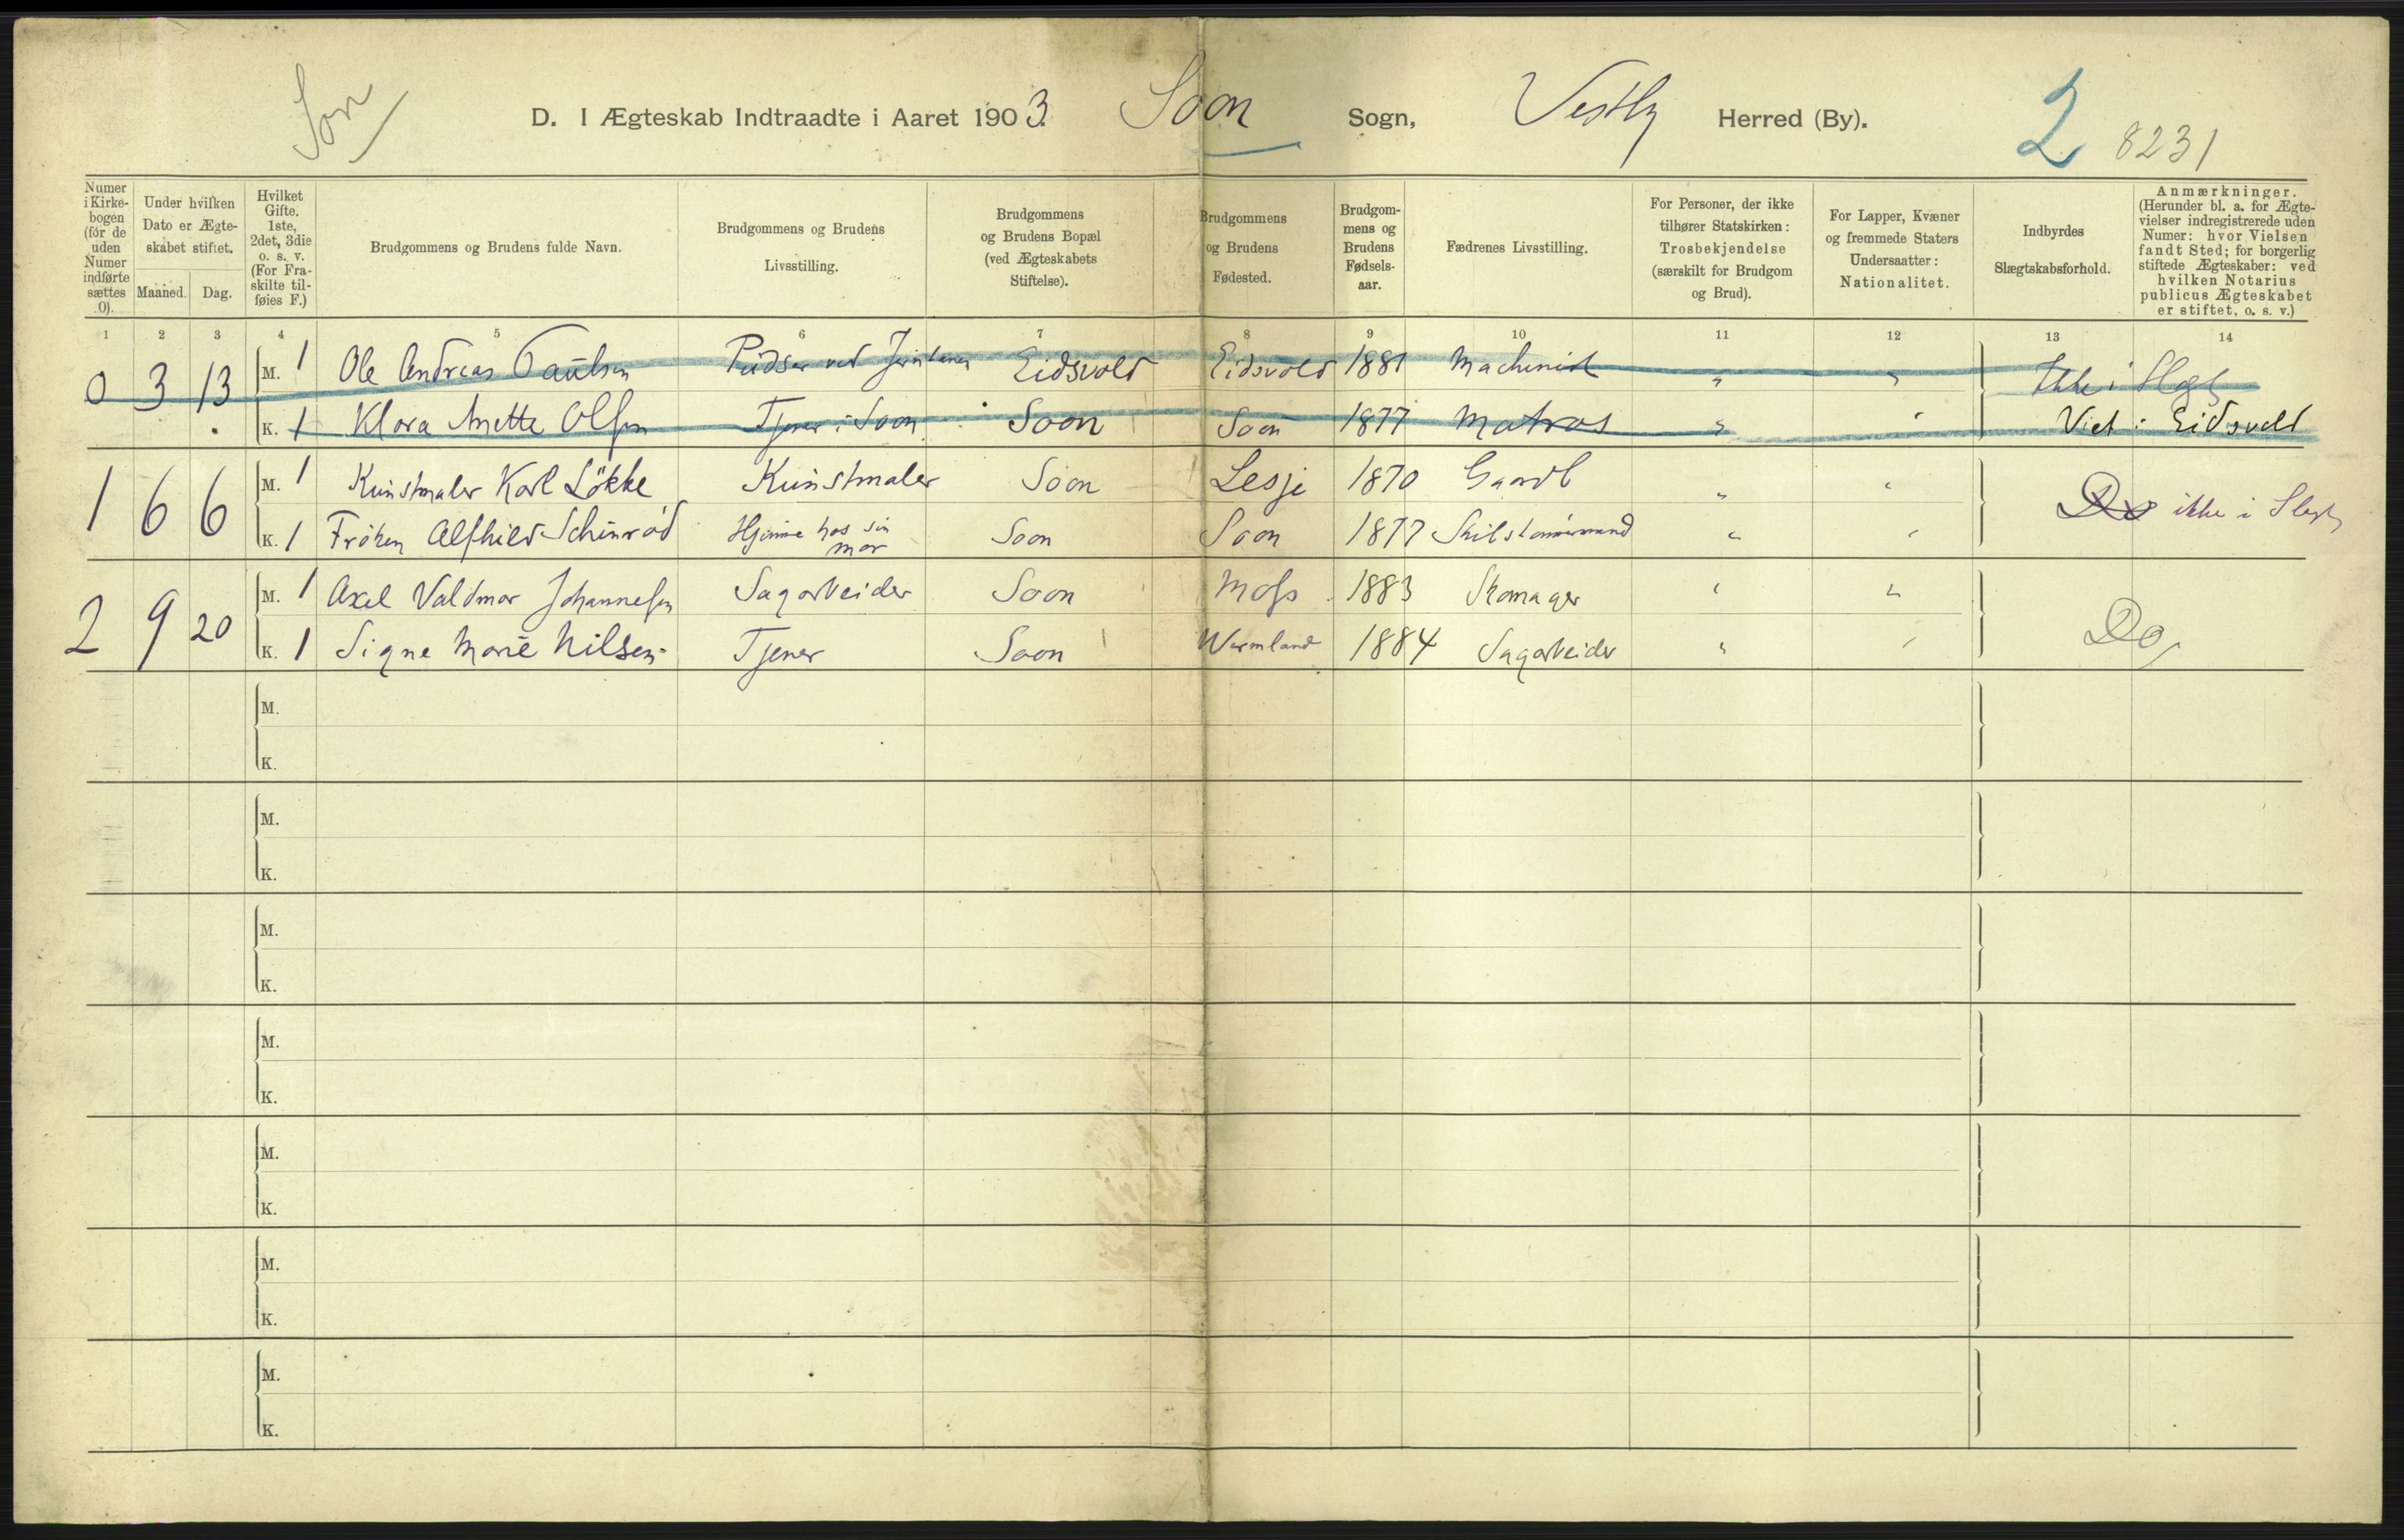 Son
D. I Ægteskab Indtraadte i Aaret 1903. Soon Sogn, Vestby Herred (By). 2 8231
Numer i Kirkebogen (for de uden Numer indførte sættes 0).
Under hvilken Dato er Ægteskabet stiftet.
Maaned. Dag.
Hvilket Gifte. 1ste, 2det, 3die o. s. v. (For Fraskilte tilføies F.)
Brudgommens og Brudens fulde Navn.
Brudgommens og Brudens Livsstilling.
Brudgommens og Brudens Bopæl (ved Ægteskabets Stiftelse).
Brudgommens og Brudens Fødested.
Brudgommens og Brudens Fødselsaar.
Fædrenes Livsstilling.
For Personer, der ikke tilhører Statskirken: Trosbekjendelse (særskilt for Brudgom og Brud).
For Lapper, Kvæner og fremmede Staters Undersaatter: Nationalitet.
Indbyrdes Slægtskabsforhold.
Anmærkninger. (Herunder bl. a. for Ægtevielser indregistrerede uden Numer: hvor Vielsen fandt Sted; for borgerlig stiftede Ægteskaber: ved hvilken Notarius publicus Ægteskabet er stiftet, o. s. v.)
1 2 3 4 5 6 7 8 9 10 11 12 13 14
0 3 13 M. 1 Ole Andreas Paulsen Pudser ved Jernbanen Eidsvold Eidsvold 1881 Machinist " " Ikke i Slægt
K. 1 Klara Anette Olsen Tjener i Soon Soon Soon 1877 Matros " " Viet i Eidsvold
1 6 6 M. 1 Kunstmaler Karl Løkke Kunstmaler Soon Lesje 1870 Gaardb " " Do ikke i Slægt
K. 1 Frøken Alfhild Schinrød Hjemme hos sin mor Soon Soon 1877 " "
2 9 20 M. 1 Axel Valdmar Johannesen Sagarbeider Soon Moss 1883 Skomager " " Do
K. 1 Signe Marie Nilsen Tjener Soon Wermland 1884 Sagarbeider " "
M.
K.
M.
K.
M.
K.
M.
K.
M.
K.
M.
K.
M.
K.